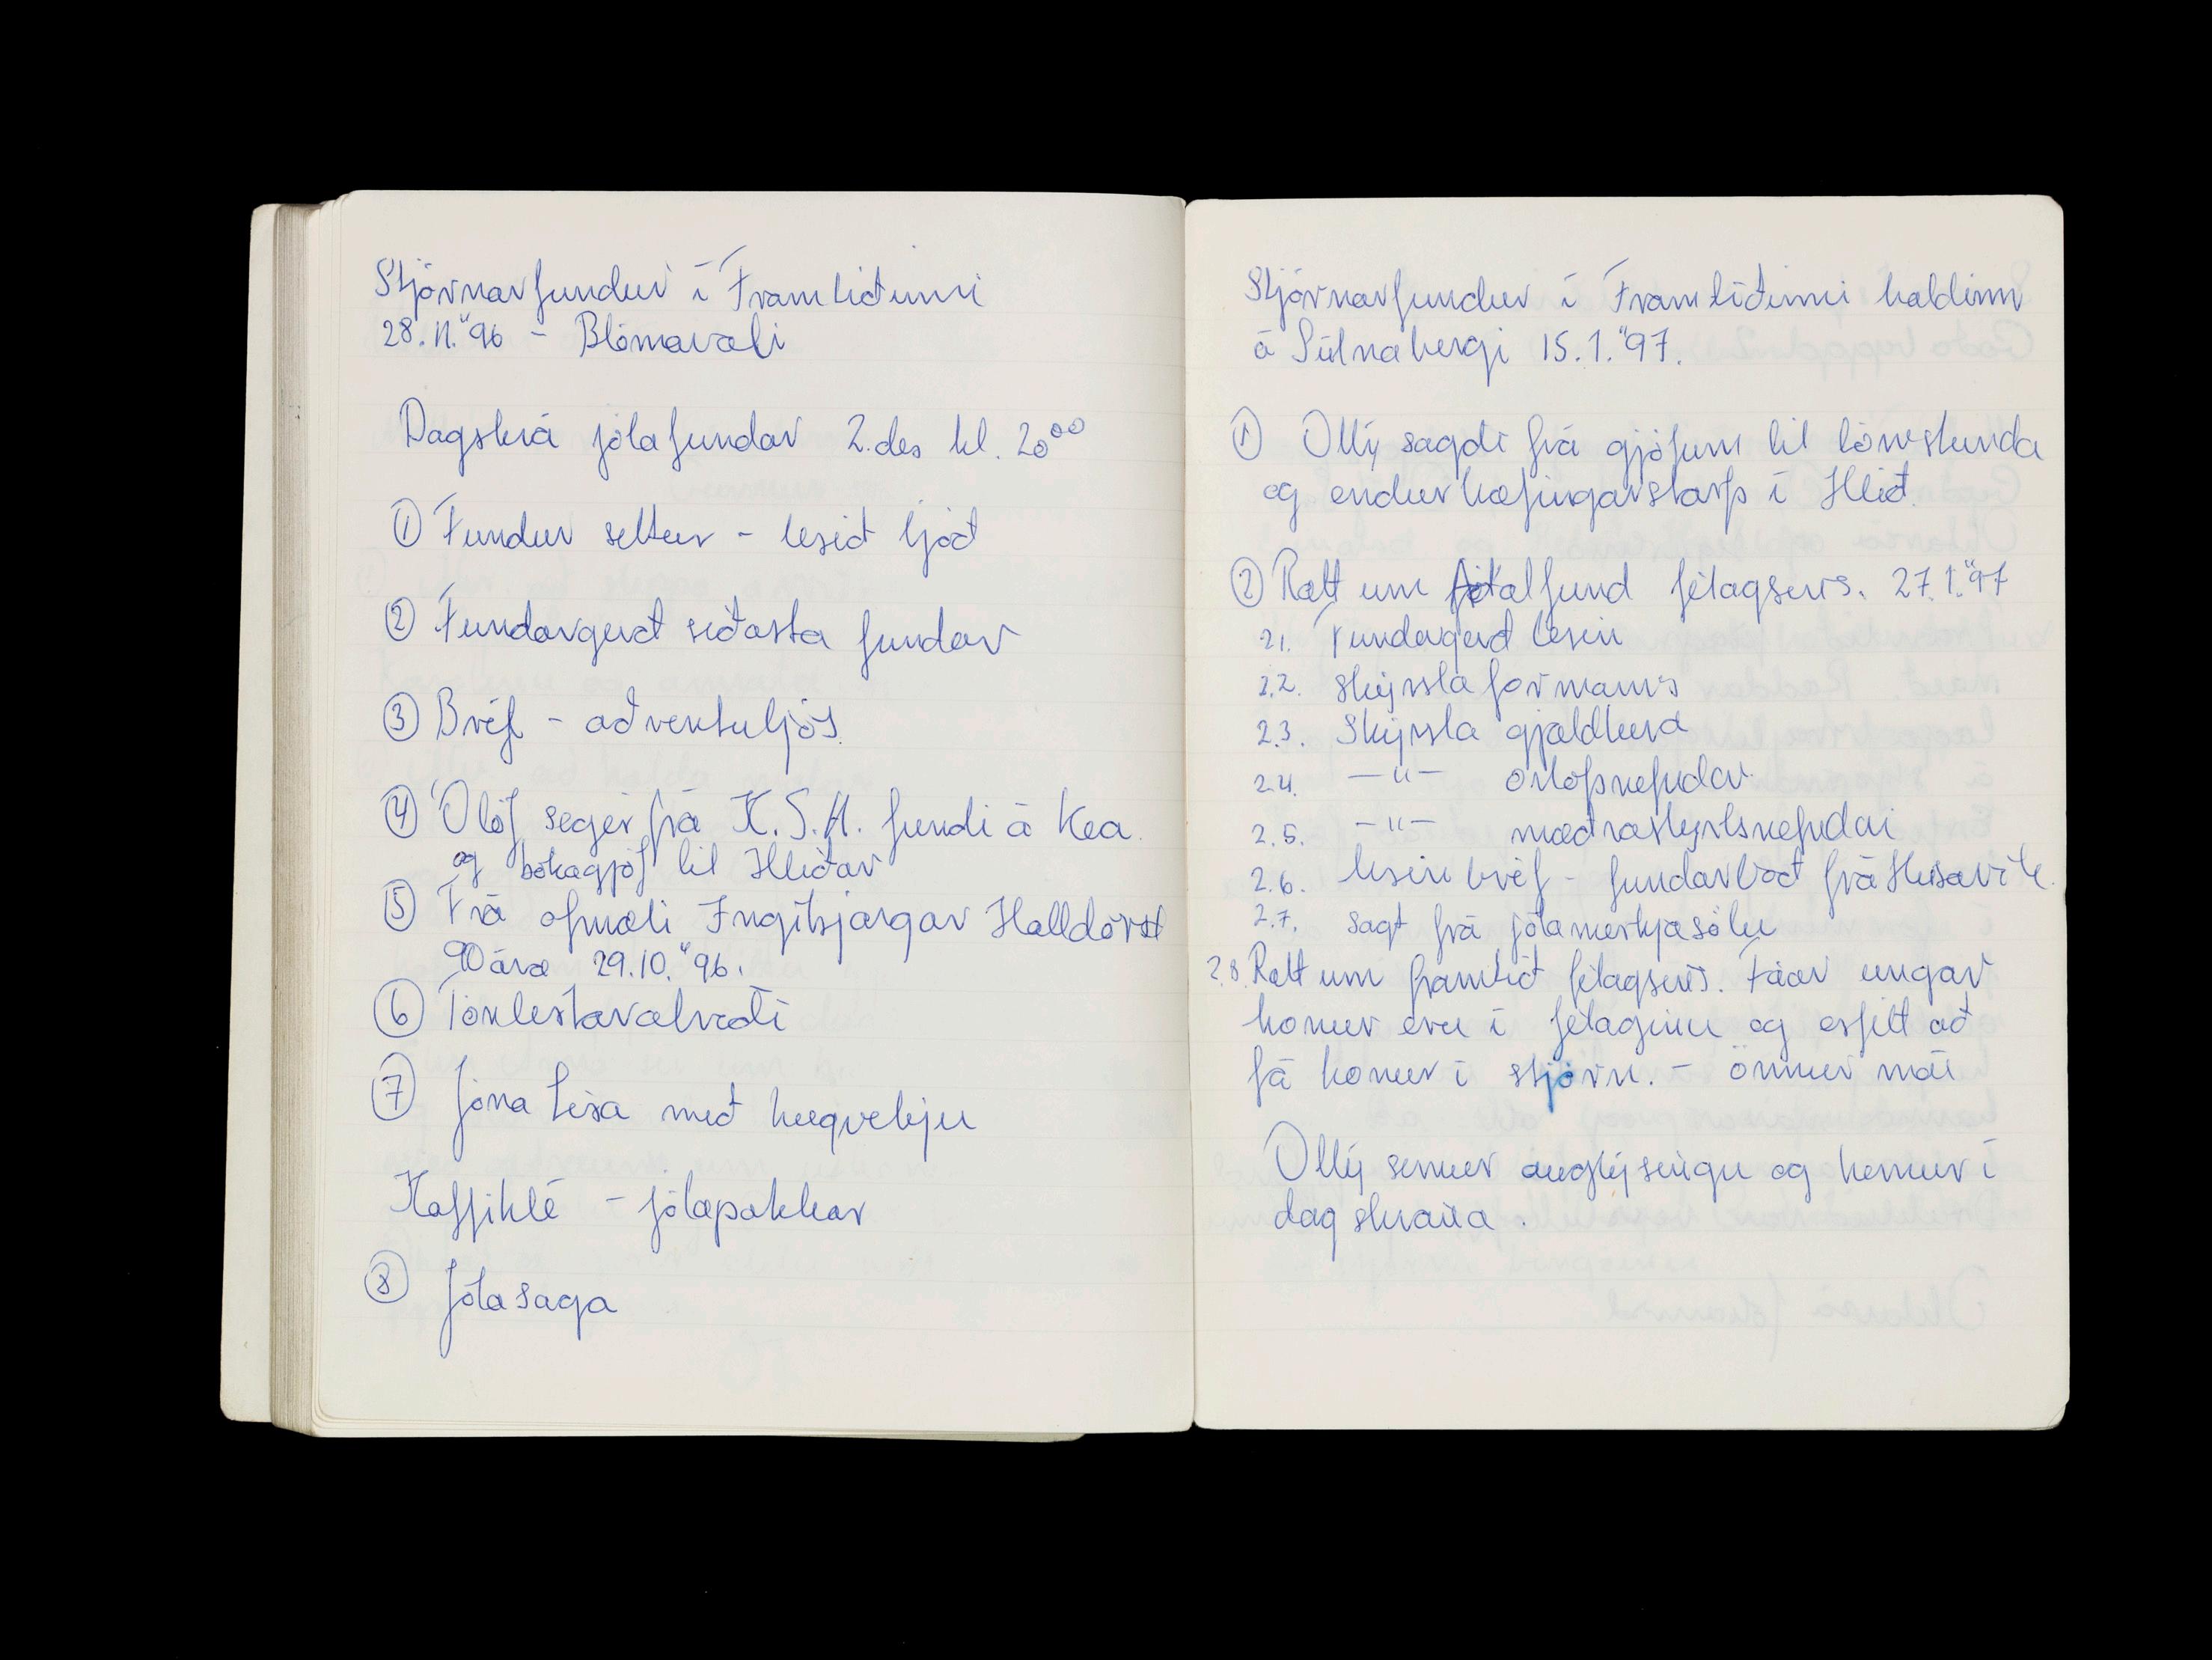 Stjórnarfundur í Framtíðinni
28.11."96 - Blómavali
Dagskrá jólafundar 2.des kl. 20⁰⁰
① Fundur settur - lesið ljóð
② Fundargerð síðasta fundar
③ Bréf - aðventuljós.
④ Ólöf segir frá K.S.H. fundi á Kea
og bókagjöf til Hlíðar
⑤ Frá afmæli Ingibjargar Halldórsd
90 ára 29.10."96.
⑥ Tónlistaratriði
⑦ Jóna Lísa með hugvekju
Kaffihlé - jólapakkar
⑧ Jólasaga
Stjórnarfundur í Framtíðinni haldinn
á Súlnabergi 15.1."97.
① Ollý sagði frá gjöfum til tómstunda
og endurhæfingarstarfs í Hlíð.
② Rætt um aðalfund félagsins. 27.1."97
2.1. Fundagerð lesin
2.2. skýrsla formanns
2.3. Skýrsla gjaldkera
2.4. —"— orlofsnefndar
2.5. —"— mæðrastyrksnefndar
2.6. lesin bréf - fundarboð frá Húsavík
2.7. sagt frá jólamerkjasölu
2.8. Rætt um framtíð félagsins. Fáar ungar
konur eru í félaginu og erfitt að
fá konur í stjórn. - önnur mál
Ollý semur auglýsingu og kemur í
dagskrána.